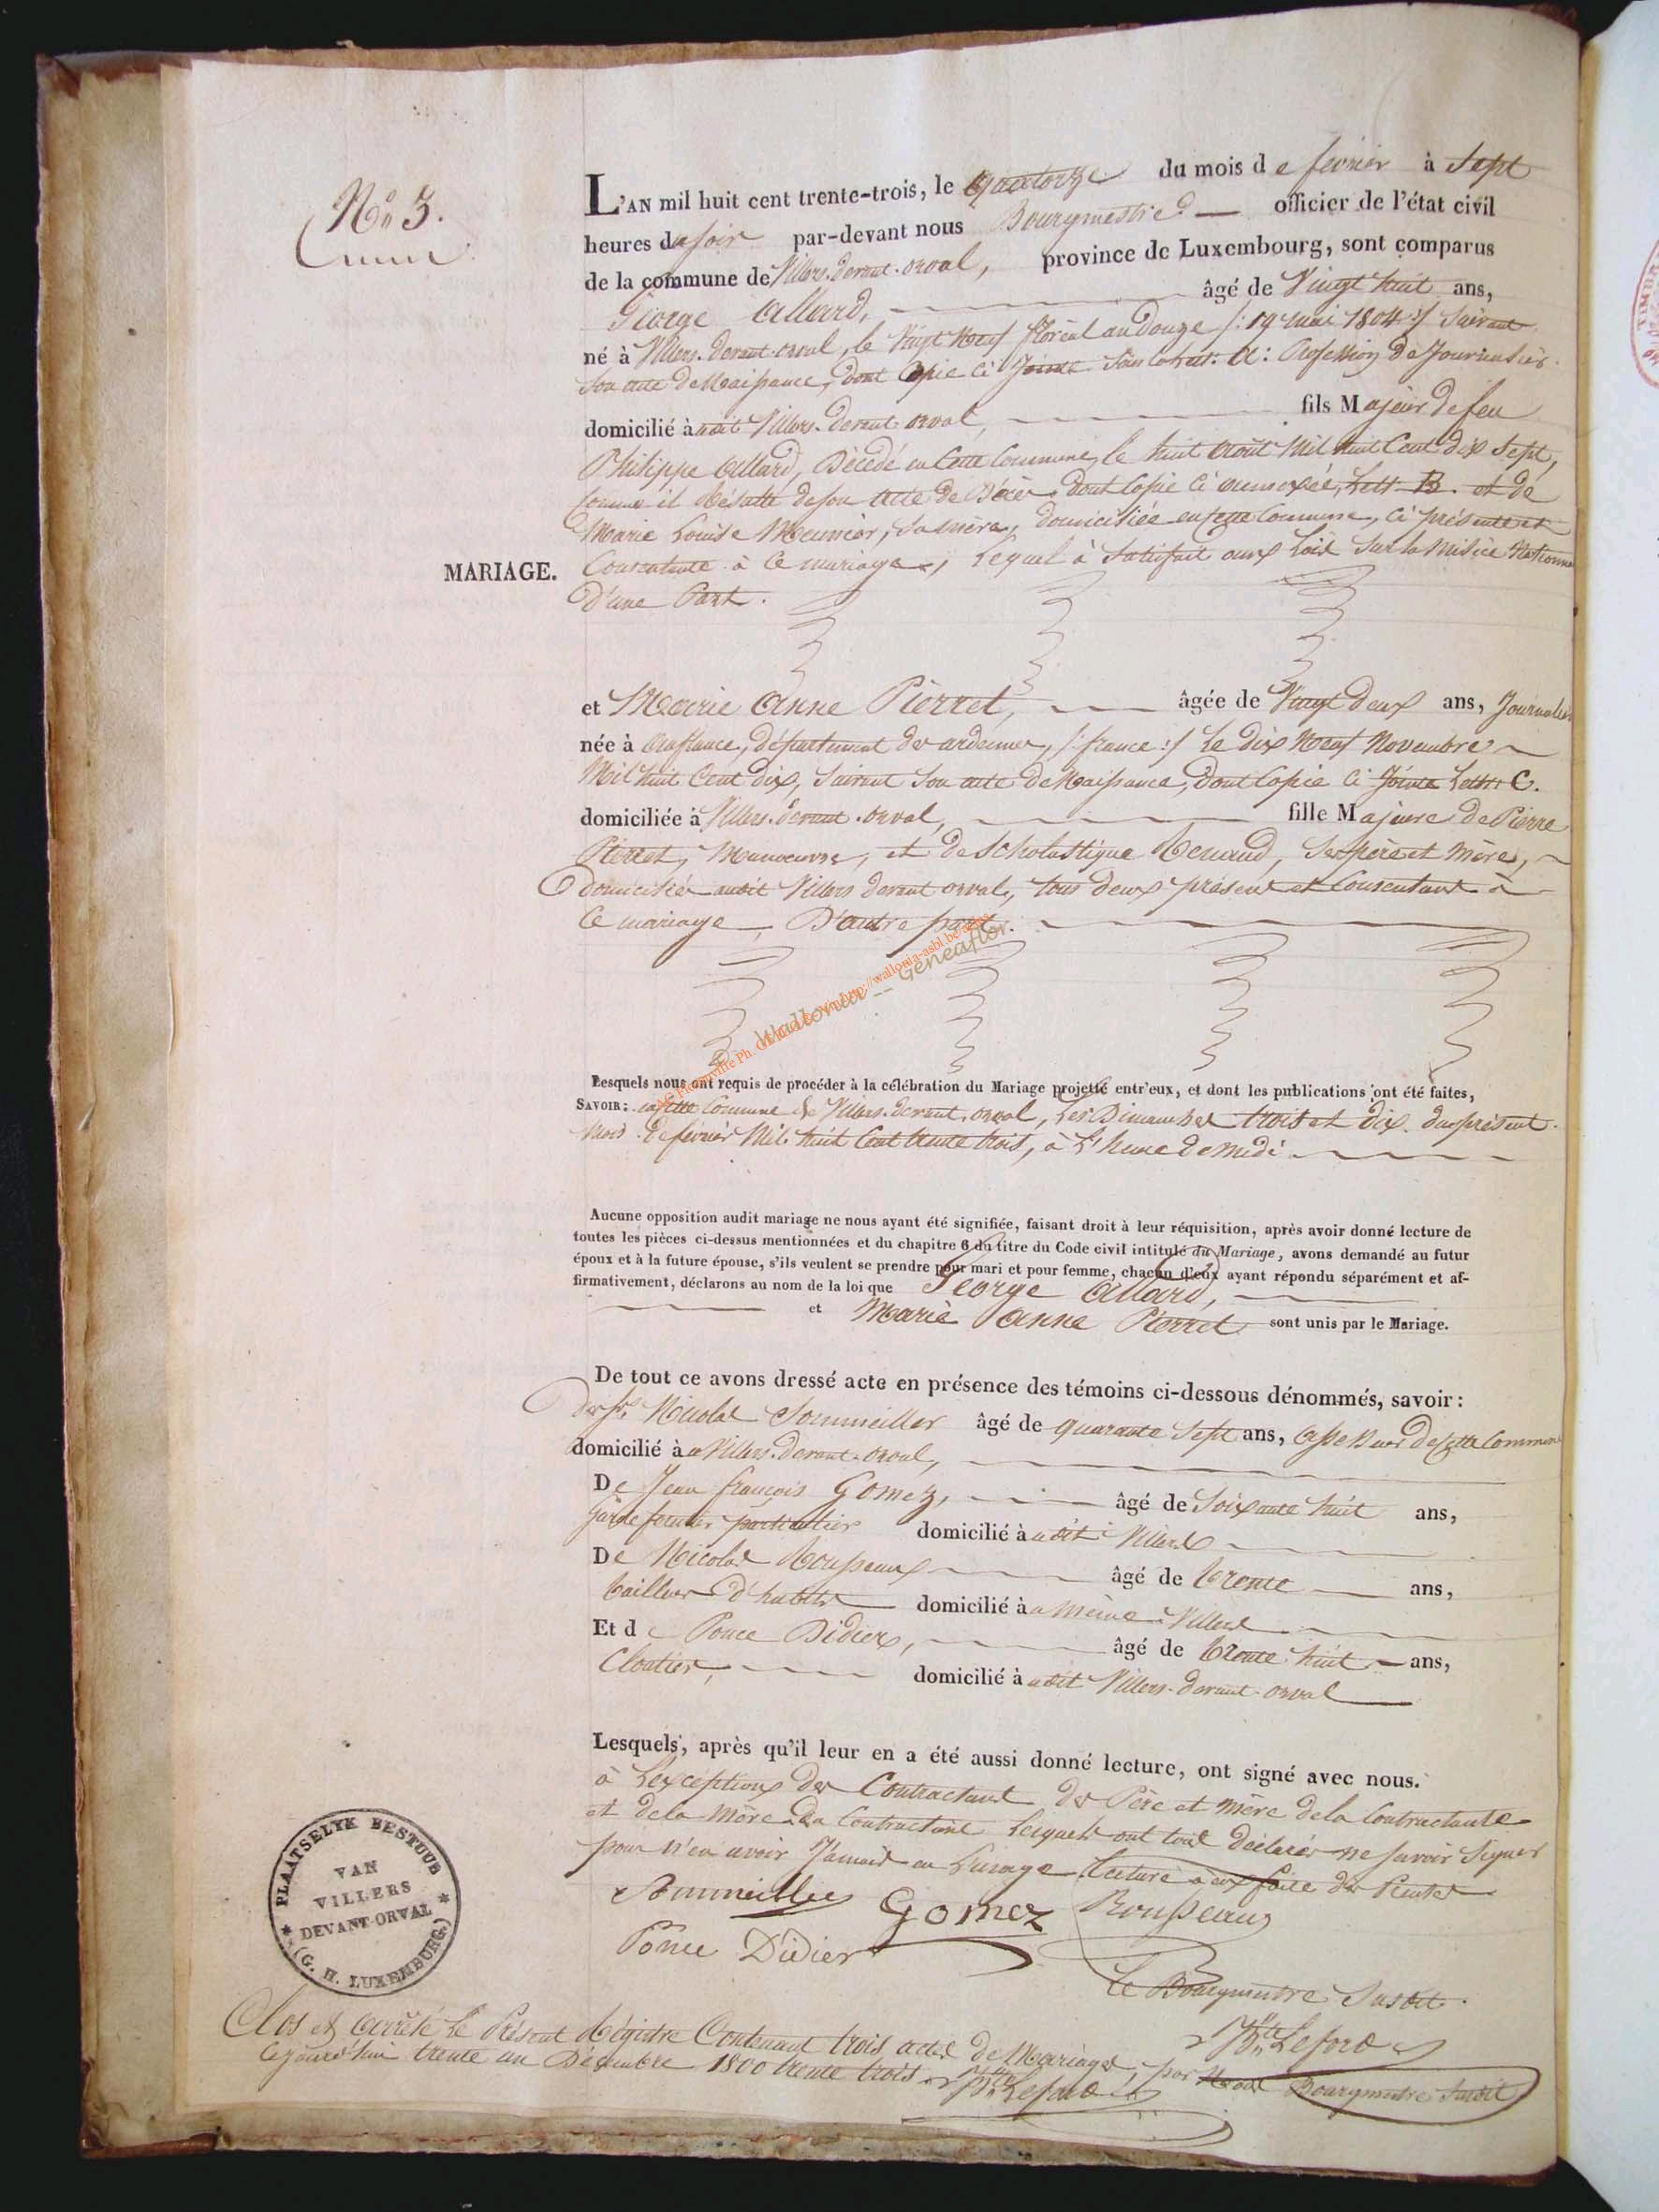 N.º 3.
L'AN mil huit cent trente-trois, le quatorze du mois de février à Sept
heures du soir par-devant nous Bourgmestre officier de l'état civil
de la commune de Villers-devant-orval, province de Luxembourg, sont comparus
George Allard, âgé de Vingt huit ans,
né à Villers-devant-orval, le Vingt Neuf floréal an douze /: 19 mai 1804 :/ Suivant
Son acte de Naissance, dont Copie ci Jointe Sous A: Profession de Journalier
domicilié audit Villers-devant orval, fils Majeur de feu
Philippe Allard, Décédé en Cette Commune, le huit août Mil huit Cent dix Sept,
Comme il Résulte de son acte de Décès, dont Copie ci annexée, Lett B. et de
Marie Louise Meunier, Sa mère, domiciliée en Cette Commune, ci présente et
MARIAGE.
Consentante à Ce mariage, Lequel à Satisfait aux Lois Sur la Milice Nationale
D'une Part.
et Marie Anne Pierret, âgée de Vingt Deux ans, Journalière
née à , département des ardennes, /: france :/ Le Dix Neuf Novembre
Mil huit Cent dix, Suivant Son acte de Naissance, dont Copie ci Jointe Lettre C.
domiciliée à Villers-devant-orval, fille Majeure de Pierre
Pierret, Manoeuvre, et de Scholastique Renaud, Ses père et mère,
domiciliés audit Villers devant orval, tous deux présens et Consentans à
Ce mariage, D'autre part.
Wallonia - Geneaflor
Lesquels nous ont requis de procéder à la célébration du Mariage projetté entr'eux, et dont les publications ont été faites,
SAVOIR: en Cette Commune de Villers-devant-orval, Les Dimanches trois et dix du présent
Mois de février Mil huit Cent trente trois, à L'heure de midi
Aucune opposition audit mariage ne nous ayant été signifiée, faisant droit à leur réquisition, après avoir donné lecture de
toutes les pièces ci-dessus mentionnées et du chapitre 6 du titre du Code civil intitulé du Mariage, avons demandé au futur
époux et à la future épouse, s'ils veulent se prendre pour mari et pour femme, chacun d'eux ayant répondu séparément et af-
firmativement, déclarons au nom de la loi que George Allard,
et Marie Anne Pierret sont unis par le Mariage.
De tout ce avons dressé acte en présence des témoins ci-dessous dénommés, savoir:
des Srs Nicolas Sommeiller âgé de quarante Sept ans, assesseur de Cette Commune
domicilié à Villers-devant-orval,
De Jean françois Gomez, âgé de Soixante huit ans,
Garde forestier particulier domicilié audit Villers
De Nicolas Rousseaux âgé de trente ans,
tailleur d'habits domicilié à même Villers
Et de Ponce Didier, âgé de trente huit ans,
Cloutier, domicilié audit Villers-devant-orval
Lesquels, après qu'il leur en a été aussi donné lecture, ont signé avec nous.
à L'exception des Contractans des Père et mère de la Contractante
et de la Mère du Contractant Lesquels ont tous déclarés ne savoir Signer
pour n'en avoir Jamais eu L'usage. Lecture à eux faite des
Sommeiller Gomez Rousseaux
Ponce Didier
Le Bourgmestre Susdit.
PLAATSELYK BESTUUR
VAN
VILLERS
DEVANT-ORVAL
(G. H. LUXEMBURG.)
Clos et arrêté Le Présent Régistre Contenant trois actes de Mariages, par Nous Bourgmestre Susdit
Cejourd'hui trente un Décembre 1800 trente trois